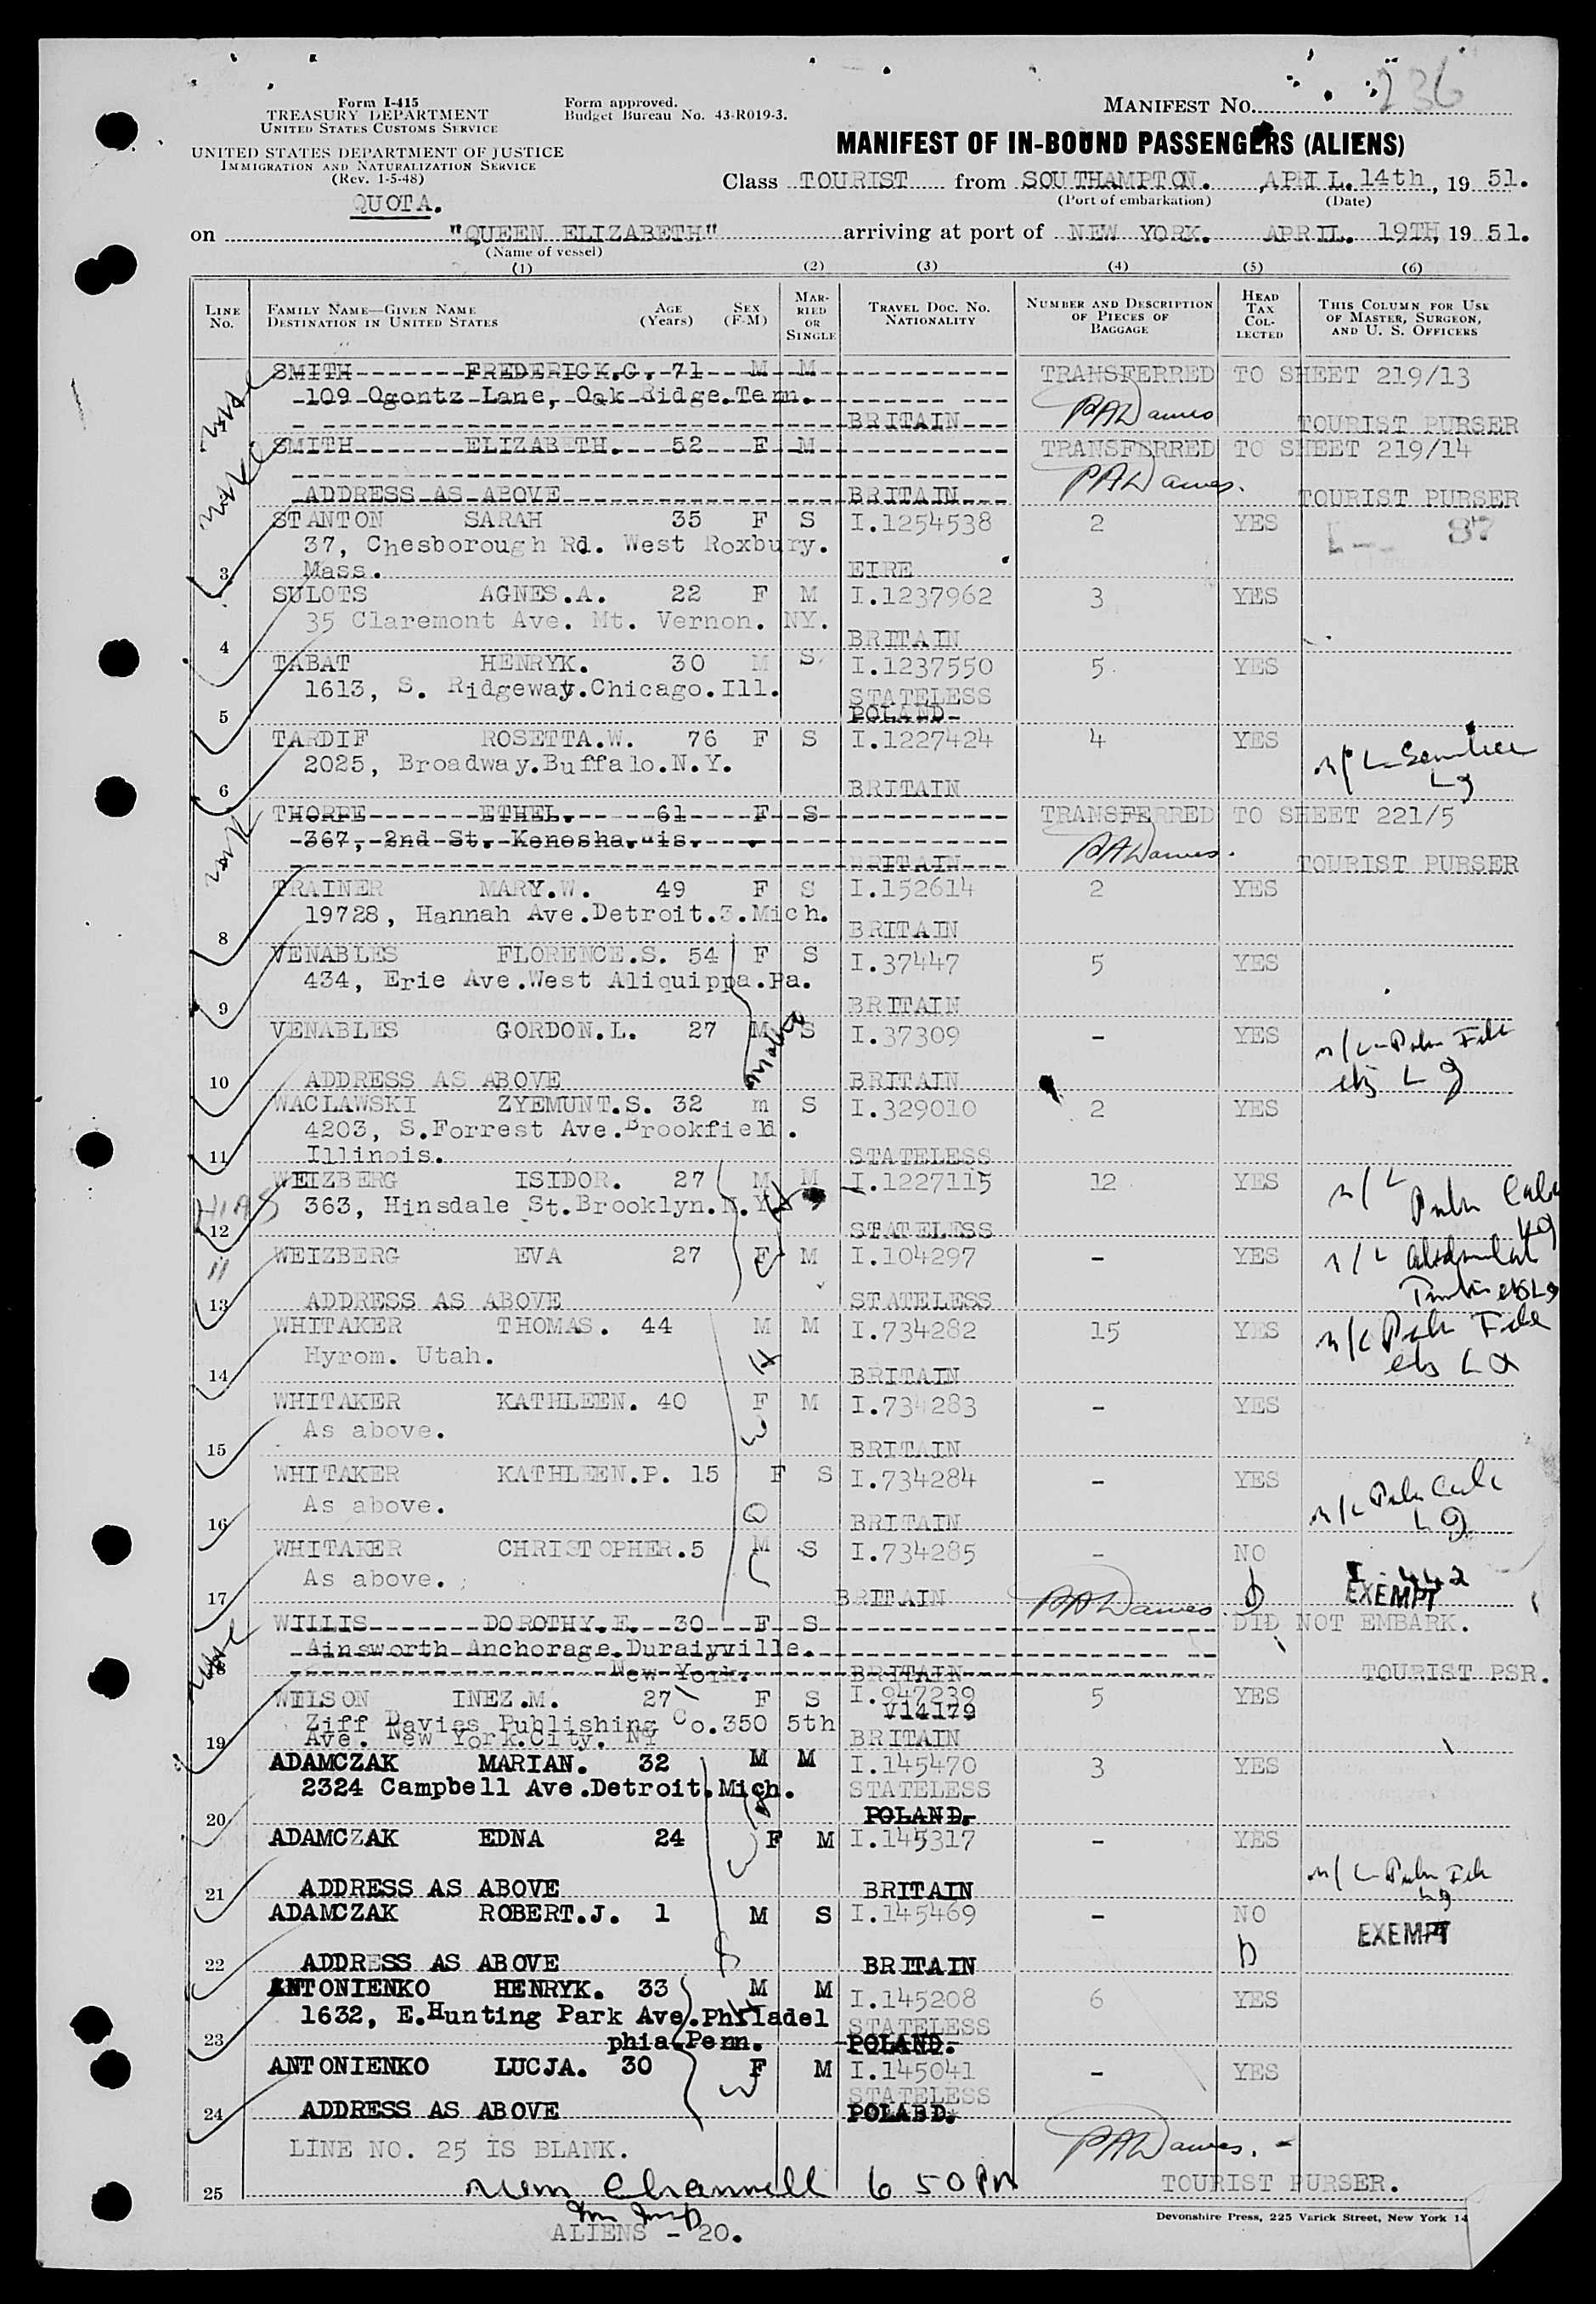 236
Form I-415
TREASURY DEPARTMENT
UNITED STATES CUSTOMS SERVICE
Form approved.
Budget Bureau No. 43-R019-3.
MANIFEST NO.
UNITED STATES DEPARTMENT OF JUSTICE
IMMIGRATION AND NATURALIZATION SERVICE
(Rev. 1-5-48)
MANIFEST OF IN-BOUND PASSENGERS (ALIENS)
Class TOURIST from SOUTHAMPTON. APRIL. 14th, 19 51.
(Port of embarkation) (Date)
QUOTA.
on "QUEEN ELIZABETH" arriving at port of NEW YORK. APRIL. 19TH, 19 51.
(Name of vessel)
(1) (2) (3) (4) (5) (6)
LINE NO. FAMILY NAME—GIVEN NAME DESTINATION IN UNITED STATES AGE (Years) SEX (F-M) MARRIED OR SINGLE TRAVEL DOC. NO. NATIONALITY NUMBER AND DESCRIPTION OF PIECES OF BAGGAGE HEAD TAX COLLECTED THIS COLUMN FOR USE OF MASTER, SURGEON, AND U. S. OFFICERS
SMITH FREDERICK.G. 71 M M TRANSFERRED TO SHEET 219/13
109 Ogontz Lane, Oak Ridge.Tenn. PADawes
BRITAIN TOURIST PURSER
SMITH ELIZABETH. 52 F M TRANSFERRED TO SHEET 219/14
PADawes.
ADDRESS AS ABOVE BRITAIN TOURIST PURSER
STANTON SARAH 35 F S I.1254538 2 YES 87
37, Chesborough Rd. West Roxbury.
3 Mass. EIRE
SULOTS AGNES.A. 22 F M I.1237962 3 YES
35 Claremont Ave. Mt. Vernon. NY.
4 BRITAIN
TABAT HENRYK. 30 M S I.1237550 5. YES
1613, S. Ridgeway.Chicago.Ill. STATELESS
5 POLAND
TARDIF ROSETTA.W. 76 F S I.1227424 4 YES
2025, Broadway.Buffalo.N.Y.
6 BRITAIN
THORPE ETHEL. 61 F S TRANSFERRED TO SHEET 221/5
367, 2nd St. Kenosha.Wis. PADawes.
BRITAIN TOURIST PURSER
TRAINER MARY.W. 49 F S I.152614 2 YES
19728, Hannah Ave.Detroit.3.Mich.
8 BRITAIN
VENABLES FLORENCE.S. 54 F S I.37447 5 YES
434, Erie Ave.West Aliquippa.Pa.
9 BRITAIN
VENABLES GORDON.L. 27 M S I.37309 - YES
Mother
10 ADDRESS AS ABOVE BRITAIN
WACLAWSKI ZYEMUNT.S. 32 m S I.329010 2 YES
4203, S.Forrest Ave.Brookfield.
11 Illinois. STATELESS
WEIZBERG ISIDOR. 27 M M I.1227115 12 YES
HIAS 363, Hinsdale St.Brooklyn.N.Y.
12 STATELESS
WEIZBERG EVA 27 F M I.104297 - YES
13 ADDRESS AS ABOVE STATELESS
WHITAKER THOMAS. 44 M M I.734282 15 YES
Hyrom. Utah.
14 BRITAIN
WHITAKER KATHLEEN. 40 F M I.734283 - YES
As above.
15 BRITAIN
WHITAKER KATHLEEN.P. 15 F S I.734284 - YES
As above.
16 BRITAIN
WHITAKER CHRISTOPHER.5 M S I.734285 - NO
As above. I-442
17 BRITAIN PADawes EXEMPT
WILLIS DOROTHY.E. 30 F S DID NOT EMBARK.
Ainsworth Anchorage.Duraiyville.
18 New York. BRITAIN TOURIST PSR.
WILSON INEZ.M. 27 F S I.947239 5 YES
V14179
Ziff Davies Publishing Co.350 5th
19 Ave. New York.City. NY BRITAIN
ADAMCZAK MARIAN. 32 M M I.145470 3 YES
2324 Campbell Ave.Detroit.Mich. STATELESS
20 POLAND.
ADAMCZAK EDNA 24 F M I.145317 - YES
21 ADDRESS AS ABOVE BRITAIN
ADAMCZAK ROBERT.J. 1 M S I.145469 - NO
EXEMPT
22 ADDRESS AS ABOVE BRITAIN
ANTONIENKO HENRYK. 33 M M I.145208 6 YES
1632, E.Hunting Park Ave.Philadel STATELESS
23 phia.Penn. POLAND.
ANTONIENKO LUCJA. 30 F M I.145041 - YES
STATELESS
24 ADDRESS AS ABOVE POLABD.
LINE NO. 25 IS BLANK. PADawes.
25 6 50 PM TOURIST PURSER.
ALIENS - 20.
Devonshire Press, 225 Varick Street, New York 14